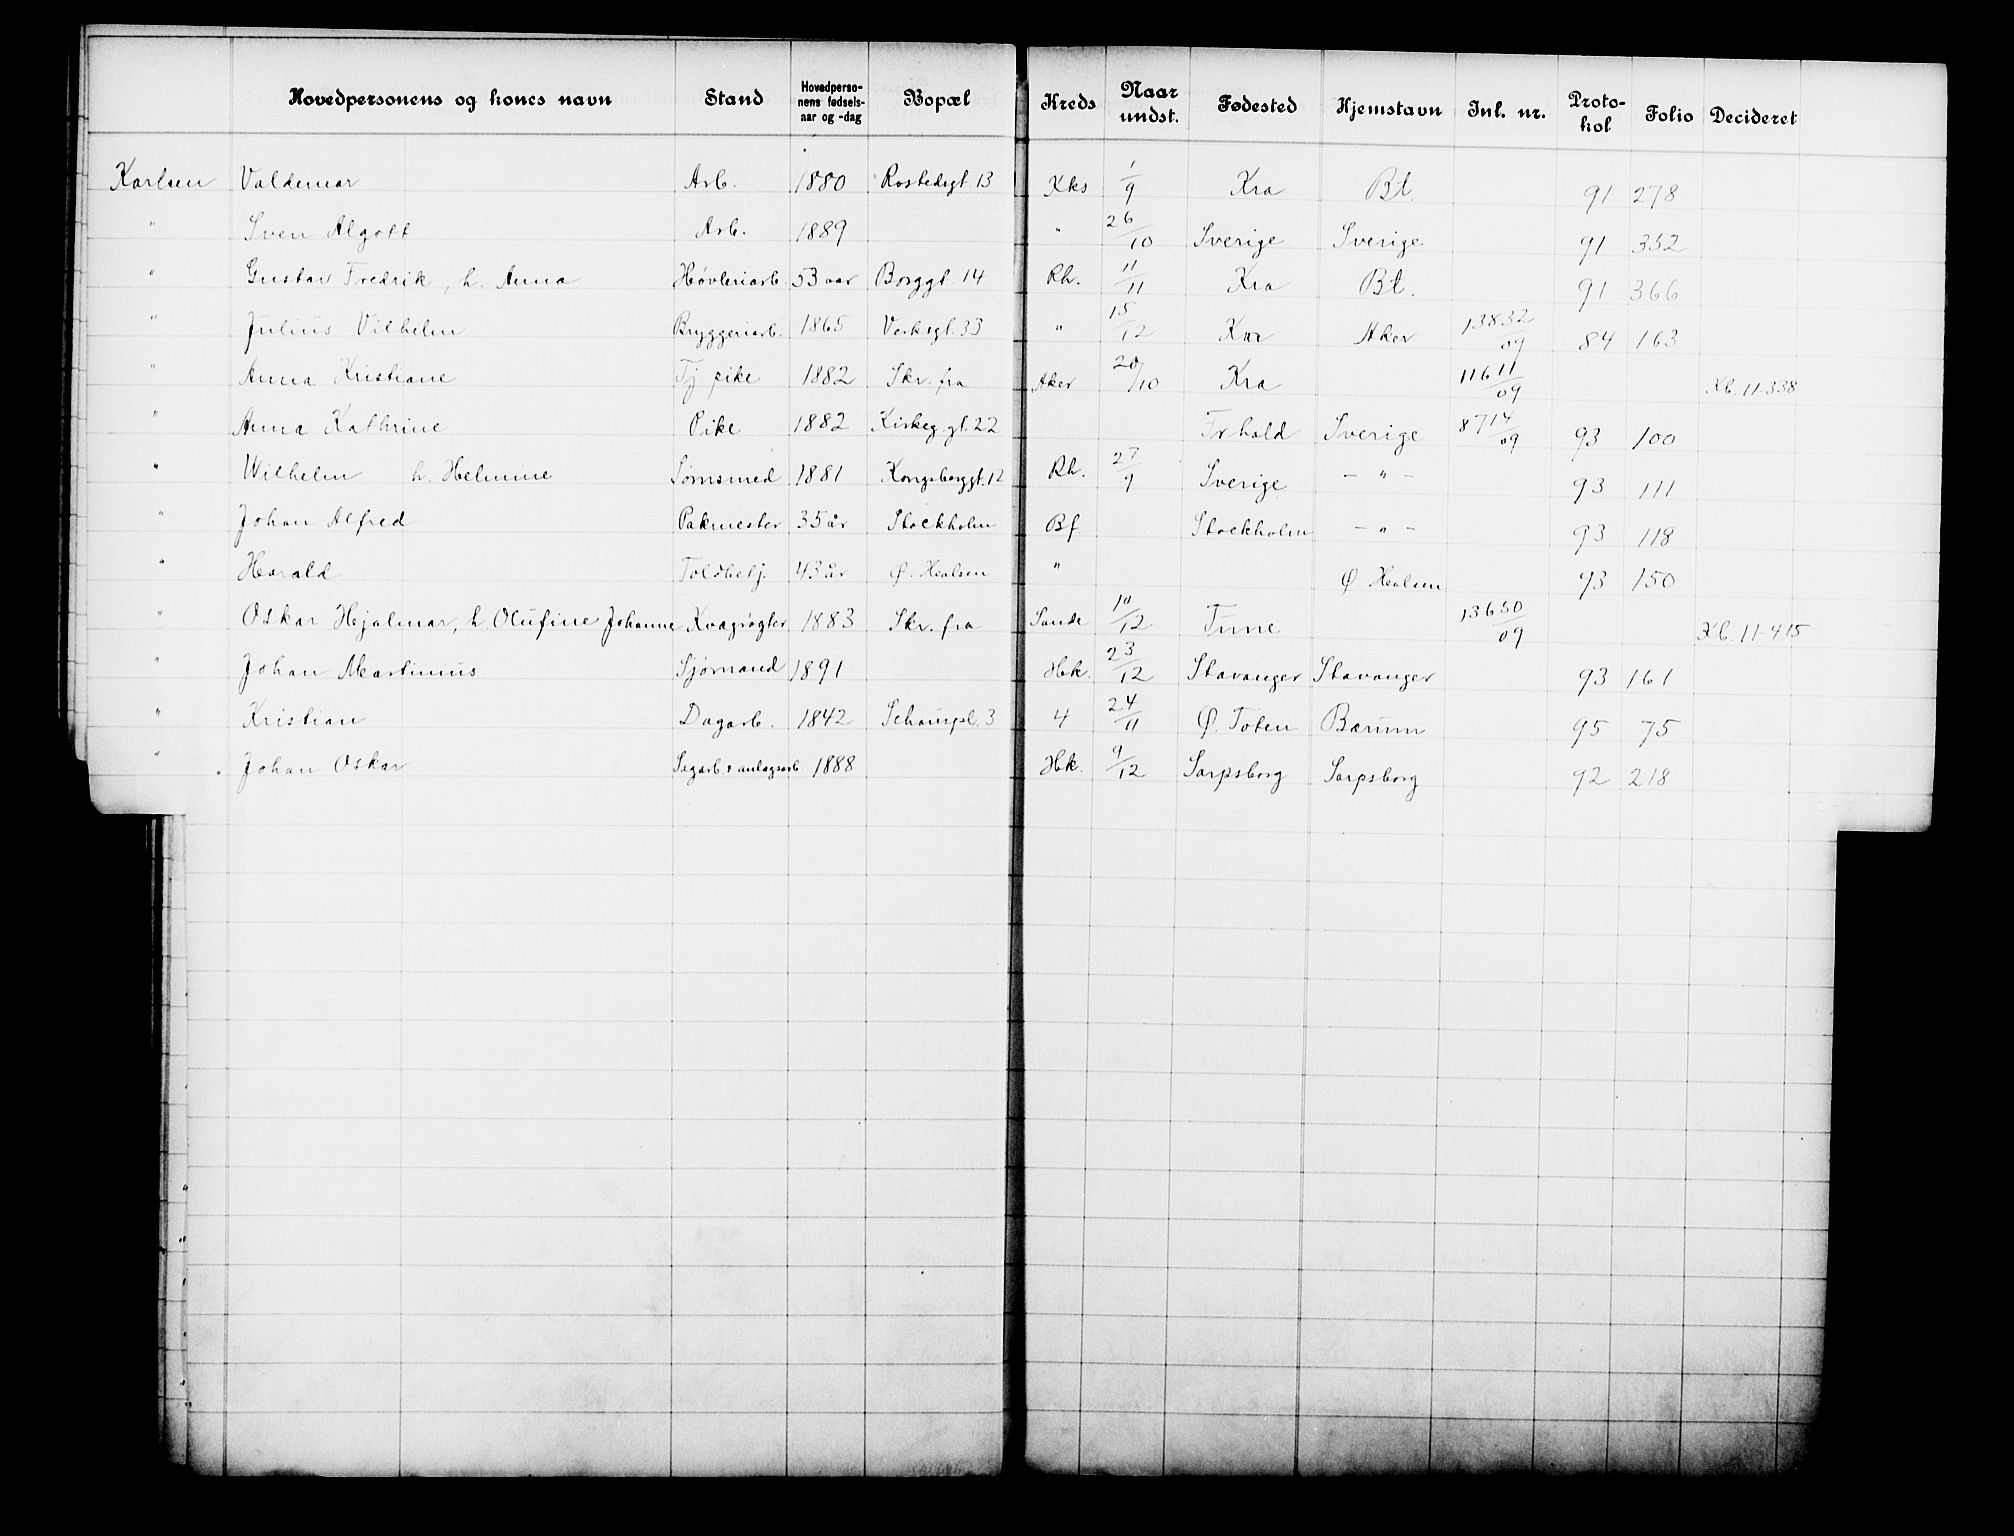 Hovedpersonens og kones navn Stand Hovedperso-nens fødsels-aar og -dag Bopæl Kreds Naar undst. Fødested Hjemstavn Inl. nr. Proto-kol Folio Decideret
Karlsen Valdemar Arb. 1880 Rostedsgt. 13 Kks 1/9 Kra Bt. 91 278
" Sven Algott Arb. 1889 " 26/10 Sverige Sverige 91 352
" Gustav Fredrik, h. Anna Høvleriarb. 53 aar Borggt. 14 Rh. 11/11 Kra Bt. 91 366
" Julius Vilhelm Bryggeriarb. 1865 Verksgt. 33 " 15/12 Kra Aker 13832/09 84 163
" Anna Kristiane Tj. pike 1882 Skr. fra Aker 20/10 Kra 11611/09 Kb. 11-338
" Anna Kathrine Pike 1882 Kirkeg. gt. 22 Fr.hald Sverige 8714/09 93 100
" Wilhelm h. Helmine Sømsmed 1881 Kongsberggt. 12 Rh. 27/9 Sverige - " - 93 111
" Johan Alfred Pakmester 35 år Stockholm Bf. Stockholm - " - 93 118
" Harald Toldbetj. 43 år Ø. " Ø. 93 150
" Oskar Hjalmar, h. Olufine Johanne Kvægrøgter 1883 Skr. fra Sande 10/12 Tune 13650/09 Kb. 11-415
" Johan Martinius Sjømand 1891 Hk. 23/12 Stavanger Stavanger 93 161
" Kristian Dagarb. 1842 Schougpl. 3 4 24/11 Ø. Toten Bærum 95 75
" Johan Oskar Sagarb. & anlagsarb 1888 Hk. 9/12 Sarpsborg Sarpsborg 92 218